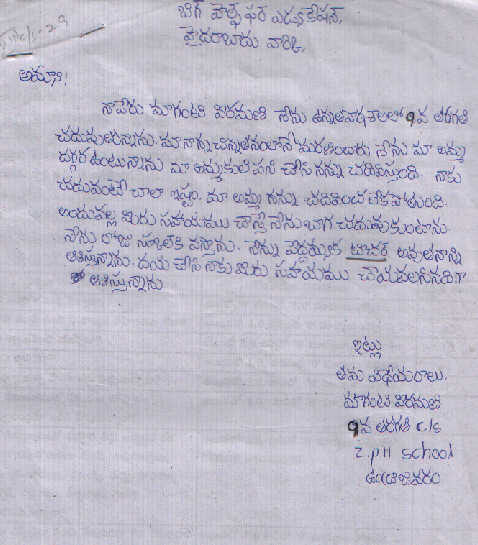 బిగ్ హెల్ప్ ఫర్ ఎడ్యుకేషన్,
హైదరాబాదు వారికి,
అమ్మా!
నాపేరు మాగంటి విరమణి నేను ఉన్నతపాఠశాలలో 9వ తరగతి
చదువుతున్నాను. మా నాన్న చిన్నతనంలోనే మరణించారు. నేను మా అమ్మ
దగ్గర ఉంటున్నాను మా అమ్మ కులిపని చేసి నన్ను చదివిస్తుంది. నాకు
చదువంటే చాలా ఇష్టం. మా అమ్మ నన్ను చదివించలేకపోతుంది.
అందువల్ల మీరు సహాయము చేస్తే నేను బాగ చదువుకుంటాను.
నేను రోజు స్కూలుకి వస్తాను. నేను పెద్దయ్యాక టీచర్ అవుతానని
ఆశిస్తున్నాను. దయచేసి నాకు మీరు సహాయము చేయవలసినదిగా
ఆశిస్తున్నాను
ఇట్లు
తమ విధేయురాలు.
మాగంటి విరమణి
9వ తరగతి c/s
z.pH school